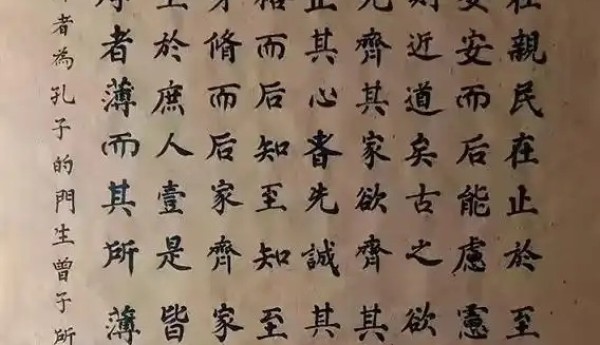 在親民在止於至
安安而后能慮慮
則近道矣古之欲
先齊其家欲齊其
正其心者先誠其
格而后知至知至
身脩而后家齊家
至於庶人壹是皆
厚者薄而其所薄
者為孔子的門生曾子所